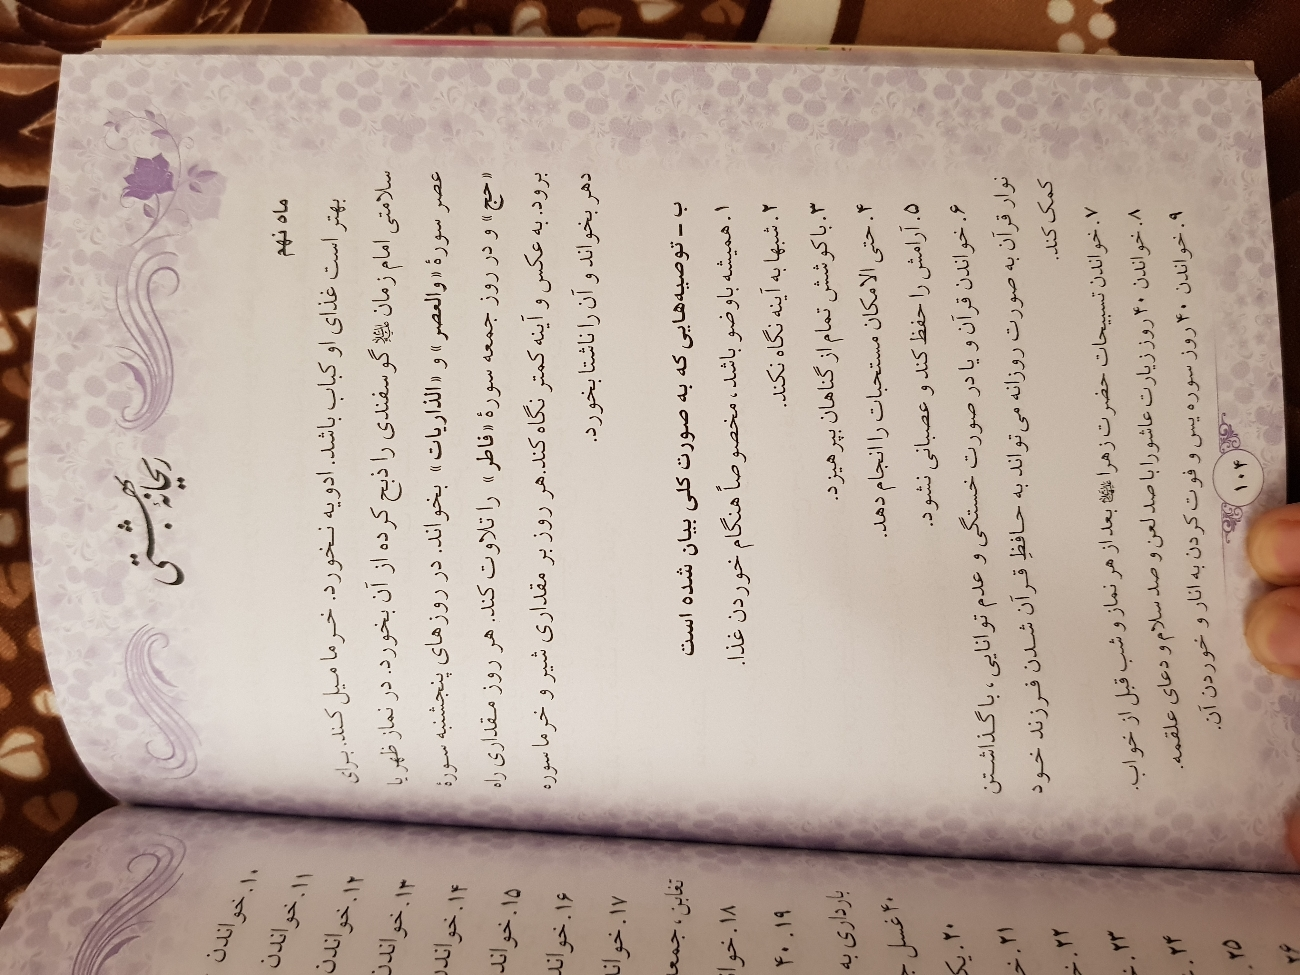 ریحانهٔ بهشتی
ماه نهم
بهتر است غذای او کباب باشد. ادویه نخورد. خرما میل کند. برای
سلامتی امام زمان گوسفندی را ذبح کرده از آن بخورد. در نماز ظهر یا
عصر سورهٔ «والعصر» و «الذاریات» بخواند. در روزهای پنجشنبه سورهٔ
«حج» و در روز جمعه سورهٔ «فاطر» را تلاوت کند. هر روز مقداری راه
برود. به عکس و آینه کمتر نگاه کند. هر روز بر مقداری شیر و خرما سوره
دهر بخواند و آن را ناشتا بخورد.
ب ـ توصیه‌هایی که به صورت کلی بیان شده است
۱. همیشه با وضو باشد، مخصوصاً هنگام خوردن غذا.
۲. شبها به آینه نگاه نکند.
۳. با کوشش تمام از گناهان بپرهیزد.
۴. حتی الامکان مستحبات را انجام دهد.
۵. آرامش را حفظ کند و عصبانی نشود.
۶. خواندن قرآن و یا در صورت خستگی و عدم توانایی، با گذاشتن
نوار قرآن به صورت روزانه می تواند به حافظِ قرآن شدن فرزند خود
کمک کند.
۷. خواندن تسبیحات حضرت زهرا بعد از هر نماز و شب قبل از خواب.
۸. خواندن ۴۰ روز زیارت عاشورا با صد لعن و صد سلام و دعای علقمه.
۹. خواندن ۴۰ روز سوره یس و فوت کردن به انار و خوردن آن.
۱۰۴
۱۰. خواندن
۱۱. خواندن
۱۲. خواندن
۱۳. خواندن
۱۴. خواندن
۱۵. خواند
۱۶. خواند
۱۷. خوان
تغابن، جمعه
۱۸. خوا
۱۹. ۴۰
بارداری به
۴۰ غسل
۲۰. یک
۲۱.
۲۲.
۲۳.
۲۴.
۲۵.
۲۶